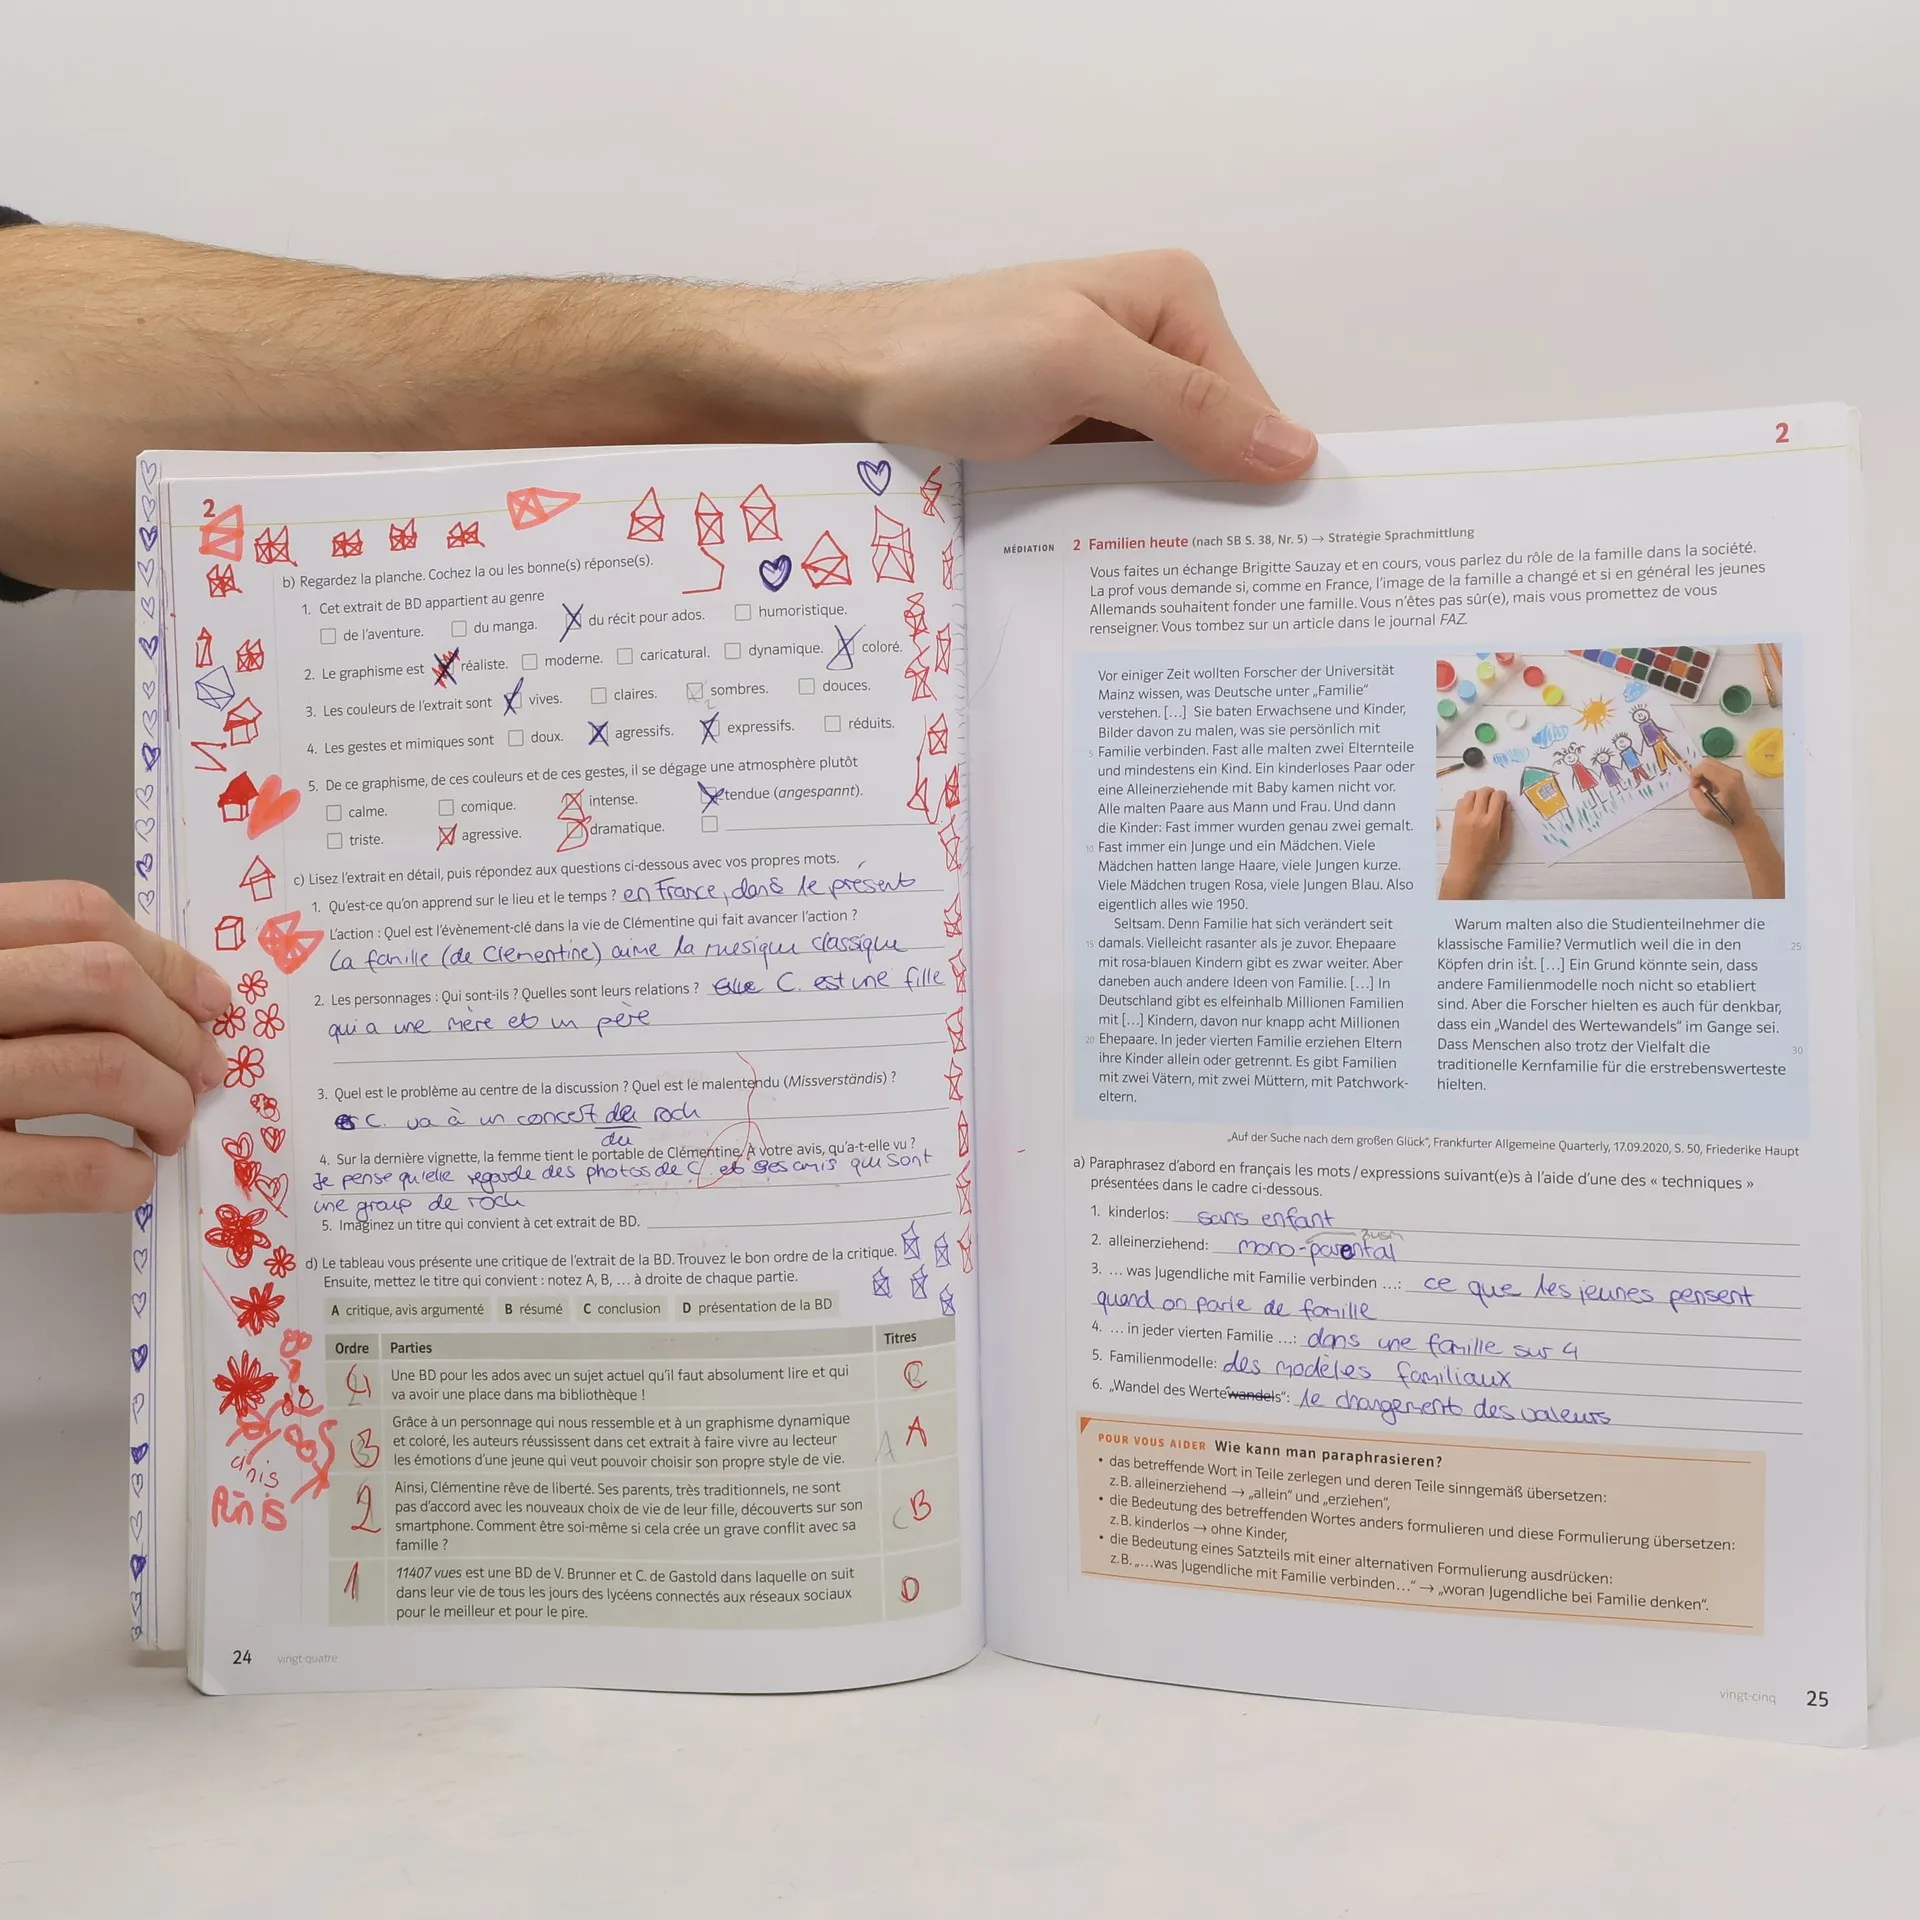 2
b) Regardez la planche. Cochez la ou les bonne(s) réponse(s).
1. Cet extrait de BD appartient au genre
de l'aventure. du manga. du récit pour ados. humoristique.
2. Le graphisme est réaliste. moderne. caricatural. dynamique. coloré.
3. Les couleurs de l'extrait sont vives. claires. sombres. douces.
4. Les gestes et mimiques sont doux. agressifs. expressifs. réduits.
5. De ce graphisme, de ces couleurs et de ces gestes, il se dégage une atmosphère plutôt
calme. comique. intense. tendue (angespannt).
triste. agressive. dramatique.
c) Lisez l'extrait en détail, puis répondez aux questions ci-dessous avec vos propres mots.
1. Qu'est-ce qu'on apprend sur le lieu et le temps ? en France, dans le présent
L'action : Quel est l'évènement-clé dans la vie de Clémentine qui fait avancer l'action ?
La famille (de Clementine) aime la musique classique
2. Les personnages : Qui sont-ils ? Quelles sont leurs relations ? C. est une fille
qui a une mère et un père
3. Quel est le problème au centre de la discussion ? Quel est le malentendu (Missverständis) ?
C. va à un concert de roch
du
4. Sur la dernière vignette, la femme tient le portable de Clémentine. À votre avis, qu'a-t-elle vu ?
Je pense qu'elle regarde des photos de C. et ses amis qui sont
une group de roch
5. Imaginez un titre qui convient à cet extrait de BD.
d) Le tableau vous présente une critique de l'extrait de la BD. Trouvez le bon ordre de la critique.
Ensuite, mettez le titre qui convient : notez A, B, ... à droite de chaque partie.
A critique, avis argumenté B résumé C conclusion D présentation de la BD
Ordre Parties Titres
4 Une BD pour les ados avec un sujet actuel qu'il faut absolument lire et qui C
va avoir une place dans ma bibliothèque !
Grâce à un personnage qui nous ressemble et à un graphisme dynamique
3 et coloré, les auteurs réussissent dans cet extrait à faire vivre au lecteur A A
les émotions d'une jeune qui veut pouvoir choisir son propre style de vie.
Ainsi, Clémentine rêve de liberté. Ses parents, très traditionnels, ne sont
2 pas d'accord avec les nouveaux choix de vie de leur fille, découverts sur son C B
smartphone. Comment être soi-même si cela crée un grave conflit avec sa
famille ?
1 11407 vues est une BD de V. Brunner et C. de Gastold dans laquelle on suit
dans leur vie de tous les jours des lycéens connectés aux réseaux sociaux D
pour le meilleur et pour le pire.
anis
24 vingt-quatre
2
MÉDIATION 2 Familien heute (nach SB S. 38, Nr. 5) → Stratégie Sprachmittlung
Vous faites un échange Brigitte Sauzay et en cours, vous parlez du rôle de la famille dans la société.
La prof vous demande si, comme en France, l'image de la famille a changé et si en général les jeunes
Allemands souhaitent fonder une famille. Vous n'êtes pas sûr(e), mais vous promettez de vous
renseigner. Vous tombez sur un article dans le journal FAZ.
Vor einiger Zeit wollten Forscher der Universität
Mainz wissen, was Deutsche unter „Familie"
verstehen. [...] Sie baten Erwachsene und Kinder,
Bilder davon zu malen, was sie persönlich mit
5 Familie verbinden. Fast alle malten zwei Elternteile
und mindestens ein Kind. Ein kinderloses Paar oder
eine Alleinerziehende mit Baby kamen nicht vor.
Alle malten Paare aus Mann und Frau. Und dann
die Kinder: Fast immer wurden genau zwei gemalt.
10 Fast immer ein Junge und ein Mädchen. Viele
Mädchen hatten lange Haare, viele Jungen kurze.
Viele Mädchen trugen Rosa, viele Jungen Blau. Also
eigentlich alles wie 1950.
Seltsam. Denn Familie hat sich verändert seit
15 damals. Vielleicht rasanter als je zuvor. Ehepaare
mit rosa-blauen Kindern gibt es zwar weiter. Aber
daneben auch andere Ideen von Familie. [...] In
Deutschland gibt es elfeinhalb Millionen Familien
mit [...] Kindern, davon nur knapp acht Millionen
20 Ehepaare. In jeder vierten Familie erziehen Eltern
ihre Kinder allein oder getrennt. Es gibt Familien
mit zwei Vätern, mit zwei Müttern, mit Patchwork-
eltern.
Warum malten also die Studienteilnehmer die
klassische Familie? Vermutlich weil die in den 25
Köpfen drin ist. [...] Ein Grund könnte sein, dass
andere Familienmodelle noch nicht so etabliert
sind. Aber die Forscher hielten es auch für denkbar,
dass ein „Wandel des Wertewandels" im Gange sei.
Dass Menschen also trotz der Vielfalt die 30
traditionelle Kernfamilie für die erstrebenswerteste
hielten.
„Auf der Suche nach dem großen Glück", Frankfurter Allgemeine Quarterly, 17.09.2020, S. 50, Friederike Haupt
a) Paraphrasez d'abord en français les mots / expressions suivant(e)s à l'aide d'une des « techniques »
présentées dans le cadre ci-dessous.
1. kinderlos: sans enfant
2. alleinerziehend: mono-parental
3. ... was Jugendliche mit Familie verbinden ...: ce que les jeunes pensent
quand on parle de famille
4. ... in jeder vierten Familie ...: dans une famille sur 4
5. Familienmodelle: des modèles familiaux
6. „Wandel des Wertewandels": le changement des valeurs
POUR VOUS AIDER Wie kann man paraphrasieren?
• das betreffende Wort in Teile zerlegen und deren Teile sinngemäß übersetzen:
z. B. alleinerziehend → „allein" und „erziehen",
• die Bedeutung des betreffenden Wortes anders formulieren und diese Formulierung übersetzen:
z. B. kinderlos → ohne Kinder,
• die Bedeutung eines Satzteils mit einer alternativen Formulierung ausdrücken:
z. B. „...was Jugendliche mit Familie verbinden..." → „woran Jugendliche bei Familie denken".
vingt-cinq 25